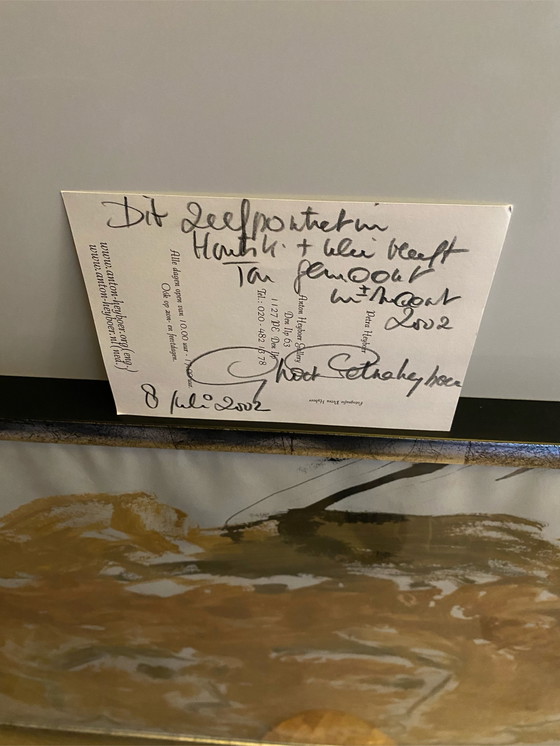 Dit Zelfportret in
+ klei heeft
Ton gemaakt
in ± maart
2002
Petra Heyboer
8 juli 2002
Petra Heyboer
Anton Heyboer Gallery
Den Ilp 63
1127 PE Den Ilp
Tel.: 020 - 482 1678
Alle dagen open van 10.00 uur -
Ook op zon- en feestdagen.
www.anton-heyboer.org (eng.)
www.anton-heyboer.nl (ned.)
Fotografie Petra Heyboer